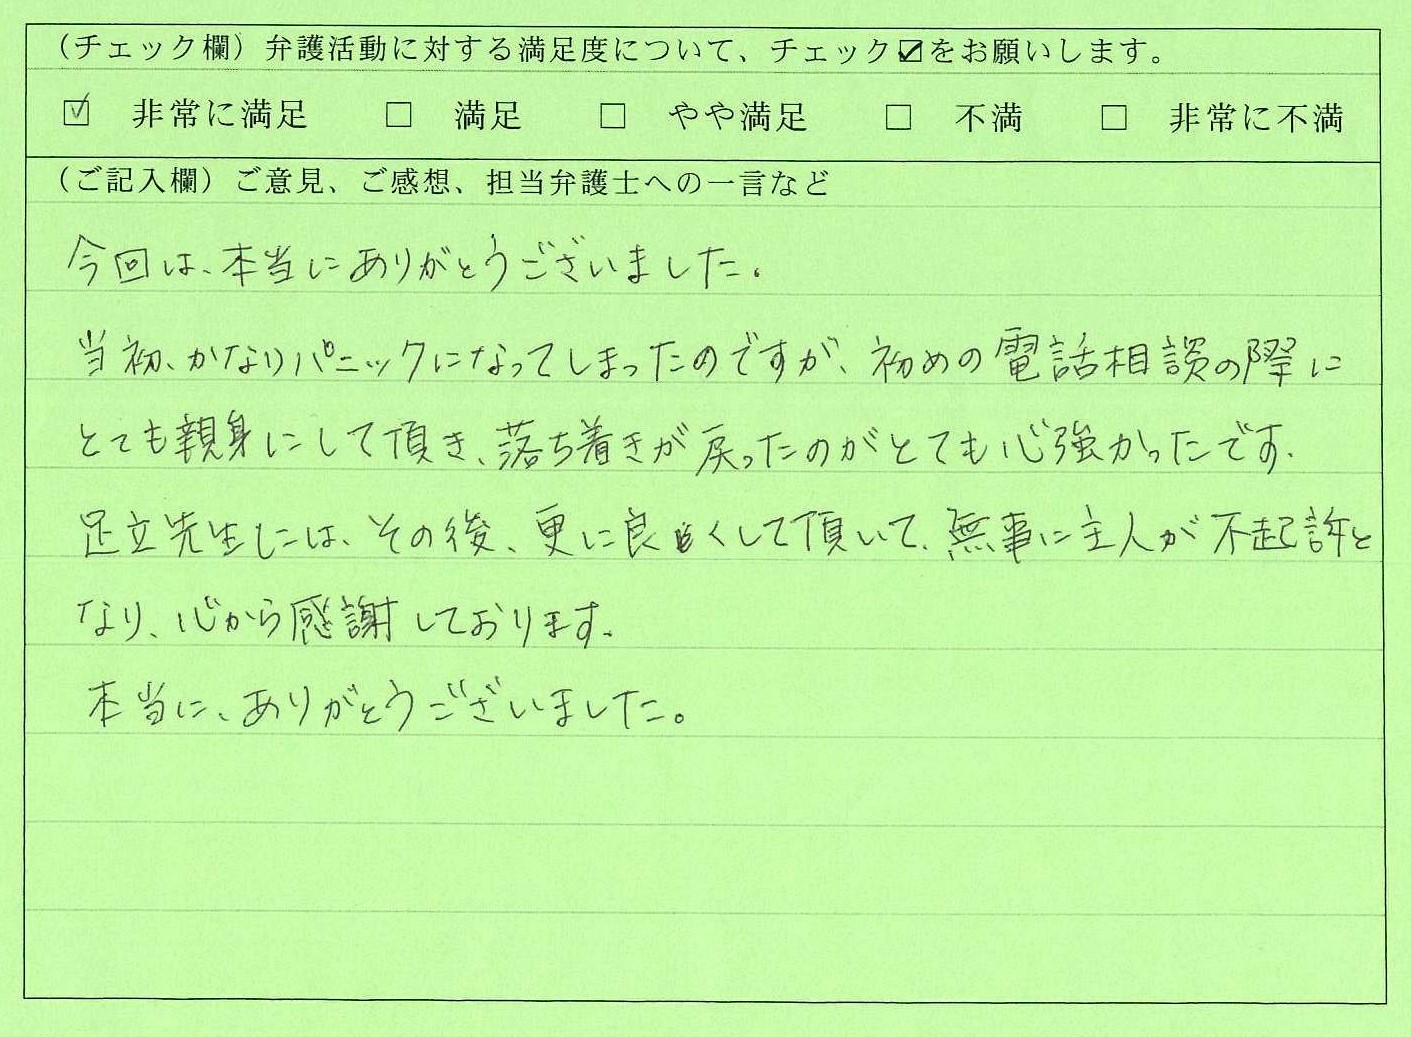 (チェック欄)弁護活動に対する満足度について、チェック☑をお願いします。
☑ 非常に満足 □ 満足 □ やや満足 □ 不満 □ 非常に不満
(ご記入欄)ご意見、ご感想、担当弁護士への一言など
今回は、本当にありがとうございました。
当初、かなりパニックになってしまったのですが、初めの電話相談の際に
とても親身にして頂き、落ち着きが戻ったのがとても心強かったです.
足立先生には、その後、更に良くして頂いて、無事に主人が不起訴と
なり、心から感謝しております。
本当に、ありがとうございました。